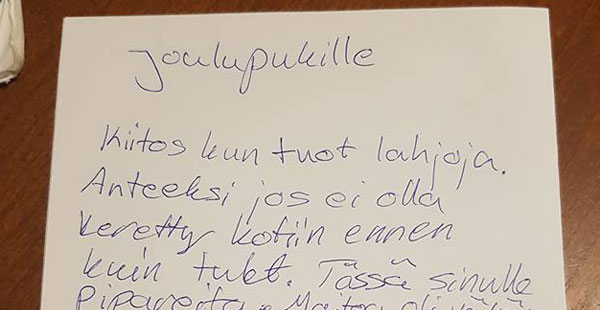 Joulupukille
Kiitos kun tuot lahjoja.
Anteeksi jos ei olla
keretty kotiin ennen
kuin tulet. Tässä sinulle
Pipareita. Maitoa oli